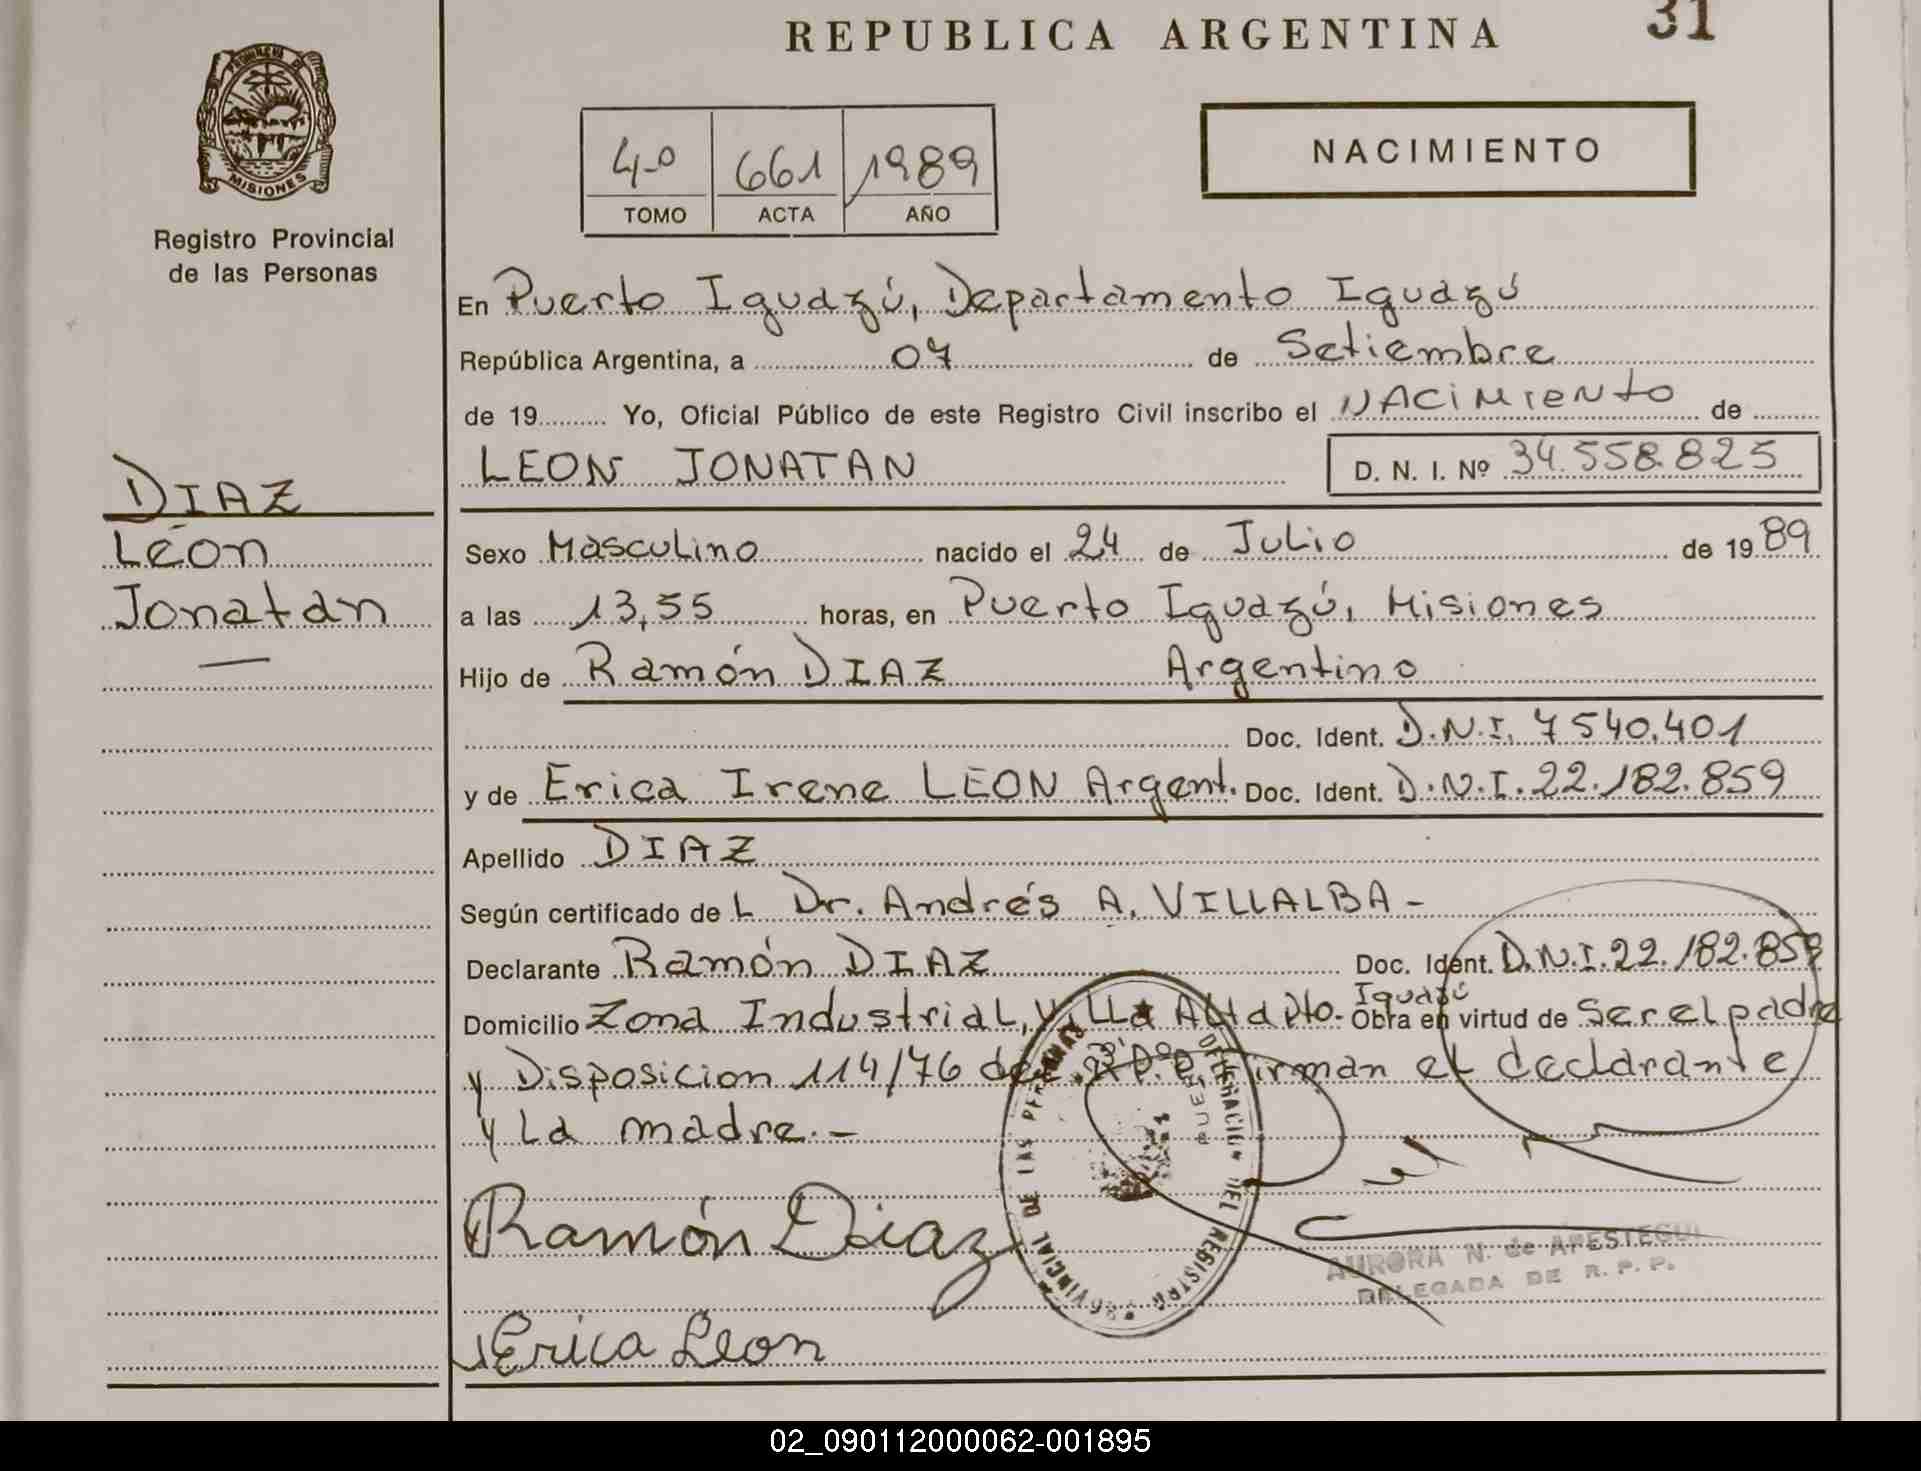 REPUBLICA ARGENTINA
31
PROVINCIA DE
MISIONES
Registro Provincial
de las Personas
4º 661 1989
TOMO ACTA AÑO
NACIMIENTO
En Puerto Iguazú, Departamento Iguazú
República Argentina, a 07 de Setiembre
de 19 Yo, Oficial Público de este Registro Civil inscribo el NACIMIENTO de
LEON JONATAN D. N. I. Nº 34.558.825
DIAZ
Léon
Jonatan
Sexo Masculino nacido el 24 de Julio de 19 89
a las 13,55 horas, en Puerto Iguazú, Misiones
Hijo de Ramón DIAZ Argentino
Doc. Ident. D.N.I. 7540.401
y de Erica Irene LEON Argent. Doc. Ident. D.N.I. 22.182.859
Apellido DIAZ
Según certificado de L Dr. Andrés A. VILLALBA -
Declarante Ramón DIAZ Doc. Ident. D.N.I. 22.182.859
Domicilio Zona Industrial, Villa Alta Pto. Iguazú Obra en virtud de Ser el padre
y Disposicion 114/76 del R.P.P. Firman el declarante
y La madre.-
Ramón Diaz
Erica Leon
DELEGACION DEL REGISTRO PROVINCIAL DE LAS PERSONAS
AURORA N. de APESTEGUI
DELEGADA DE R. P. P.
02_090112000062-001895